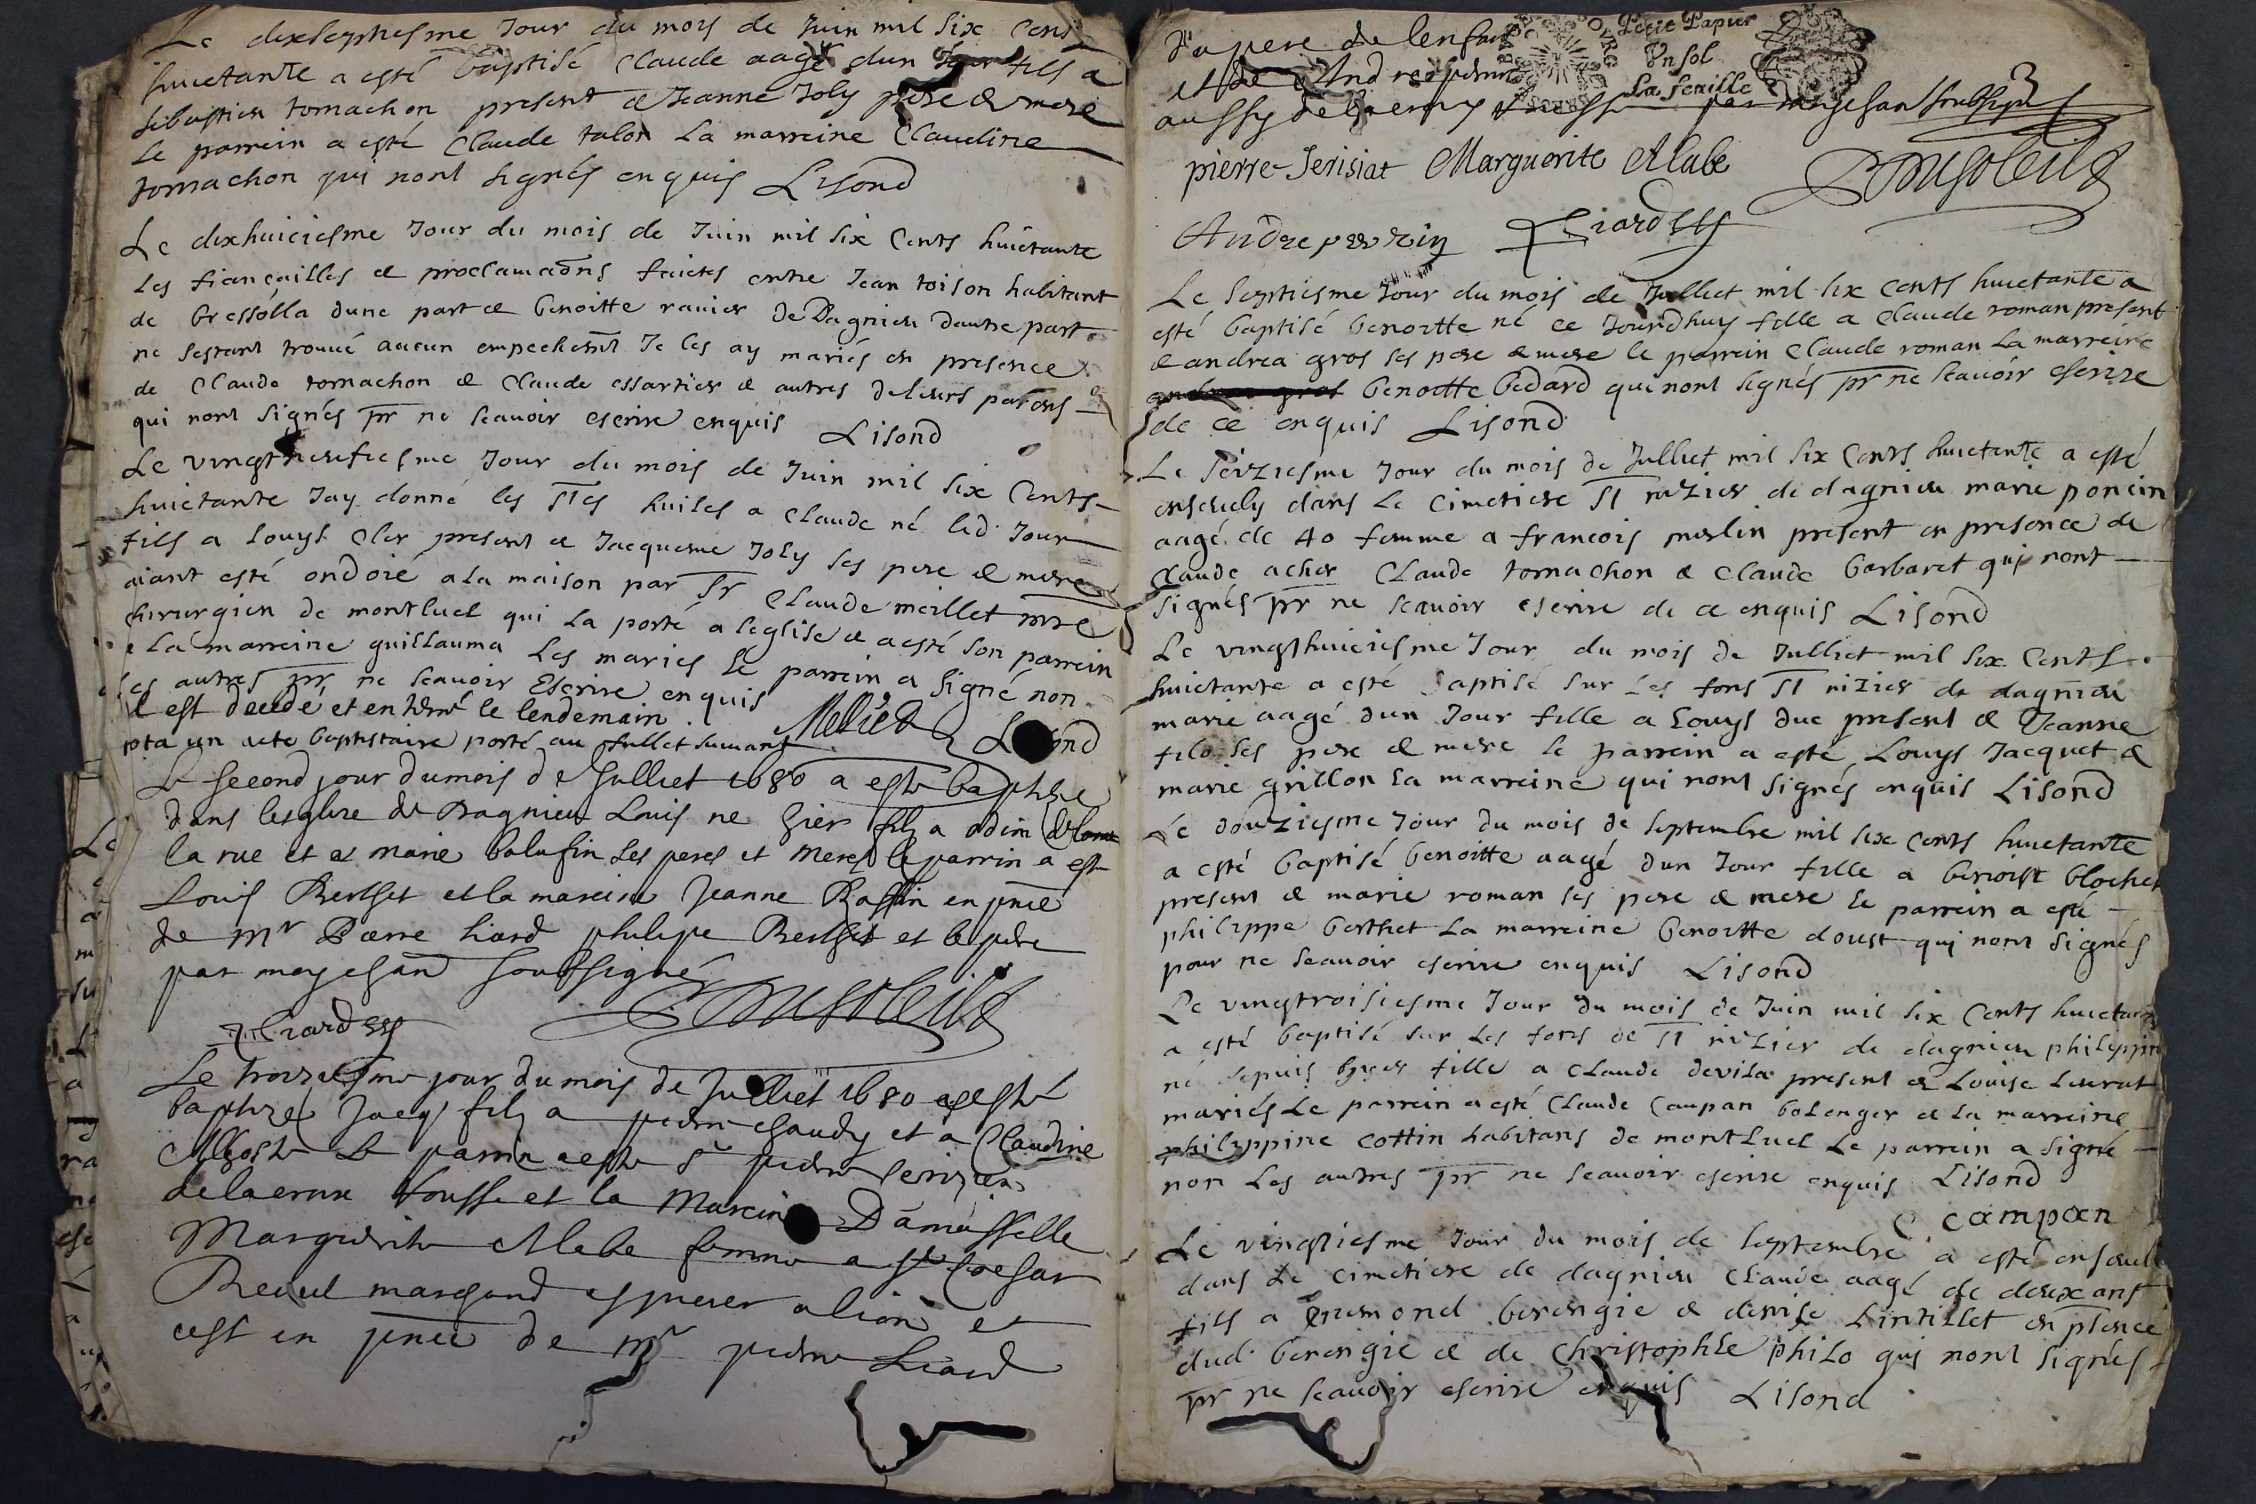 Le dixseptiesme Jour du mois de Juin mil six Cens
huictante a esté baptisé Claude aagé dun Jour fils a
sibastien tomachon present & Jeanne Joly pere & mere
Le parrein a esté Claude talon La marreine Claudine
tomachon qui nont signés enquis Lisond
Le dixhuiciesme Jour du mois de Juin mil six Cents huictante
les fiançailles & proclamaõns faictes entre Jean toison habitant
de bressolla dune part & benoitte ravier de Dagnieu dautre part
ne sestant trouvé aucun empechemt Je les ay mariés en presence
de Claude tomachon & Claude essartier & autres deleurs parens
qui nont signés pr ne scavoir escrire enquis Lisond
Le vingtneufiesme Jour du mois de Juin mil six Cents
huictante Jay donné les stes huiles a Claude né led Jour
fils a Louys Cler present & Jacqueme Joly ses pere & mere
aiant esté ondoié a la maison par Sr Claude meillet mre
chirurgien de montluel qui la porté a leglise & a esté son parrein
& La marreine guillauma Les maries Le parrein a signé non
les autres pr ne scavoir Escrire enquis
il est decedé et enterré le lendemain
pta un acte baptistaire porté au Jullet suivant Lisond
Le second jour dumois de Julliet 1680 a este baptize
dans lesglize de Dagnieu Louis ne hier filz a
la rue et a marie balufin ses peres et meres le parrin a este
Louis Berthet et la mareine Jeanne Raffin en pnce
de mr Pierre liard philipe Berthet et le pere
par moy esant soubsigné
Liard
Le troiziesme jour du mois de Julliet 1680 a este
baptize Jacqs filz a pierre chaudy et a Claudine
Le parrin a este sr pierre Serizia
de la croux rousse et la Mareine Damoiselle
Marguerite Alabe femme a sr Coesar
Reoul marchand a lion et
cest en pnce de mr pierre Liard
du pere de lenfant
et de Andre perrin
aussy de par moy esan soubsigné
Petit Papier
Un sol
La feuille
pierre Serisiat Marguerite Alabe
Andre perrein Liard
Le septiesme Jour du mois de Julliet mil six cents huictante a
esté baptisé benoitte né ce Jourdhuy fille a Claude roman present
& andrea gros ses pere & mere le parrein Claude roman La marreine
benoitte bedard qui nont signés pr ne scavoir escrire
de ce enquis Lisond
Le seiziesme Jour du mois de Julliet mil six Cents huictante a esté
ensevely dans Le Cimetiere st nizier de dagnieu marie poncin
aagé de 40 femme a francois merlin present en presence de
Claude acher Claude tomachon & Claude barbaret qui nont
signés pr ne scavoir escrire de ce enquis Lisond
Le vingthuiciesme Jour du mois de Julliet mil six Cents
huictante a esté baptisé sur Les fons st nizier de dagnieu
marie aagé dun Jour fille a Louys duc present & Jeanne
filo ses pere & mere le parrein a esté Louys Jacquet &
marie grillon La marreine qui nont signés enquis Lisond
Le douziesme Jour du mois de septembre mil six cents huictante
a esté baptisé benoitte aagé dun Jour fille a benoist blochet
present & marie roman ses pere & mere Le parrein a esté
philippe berthet La marreine benoitte doust qui nont signés
pour ne scavoir escrire enquis Lisond
Le vingtroisiesme Jour du mois de Juin mil six Cents huictante
a esté baptisé sur les fons de st nizier de dagnieu philippine
né depuis hyer fille a Claude devila present & Louise Leurat
mariés Le parrein a esté Claude Campan bolenger & La marreine
philippine Cottin habitans de montLuel Le parrein a signé
non Les autres pr ne scavoir escrire enquis Lisond
C campan
Le vingtiesme Jour du mois de septembre a esté ensevely
dans Le Cimetiere de dagnieu Claude aagé de deux ans
fils a berengié & denise Lintillet en pſence
dud berengié & de Christophle philo qui nont signés
pr ne scavoir escrire enquis Lisond